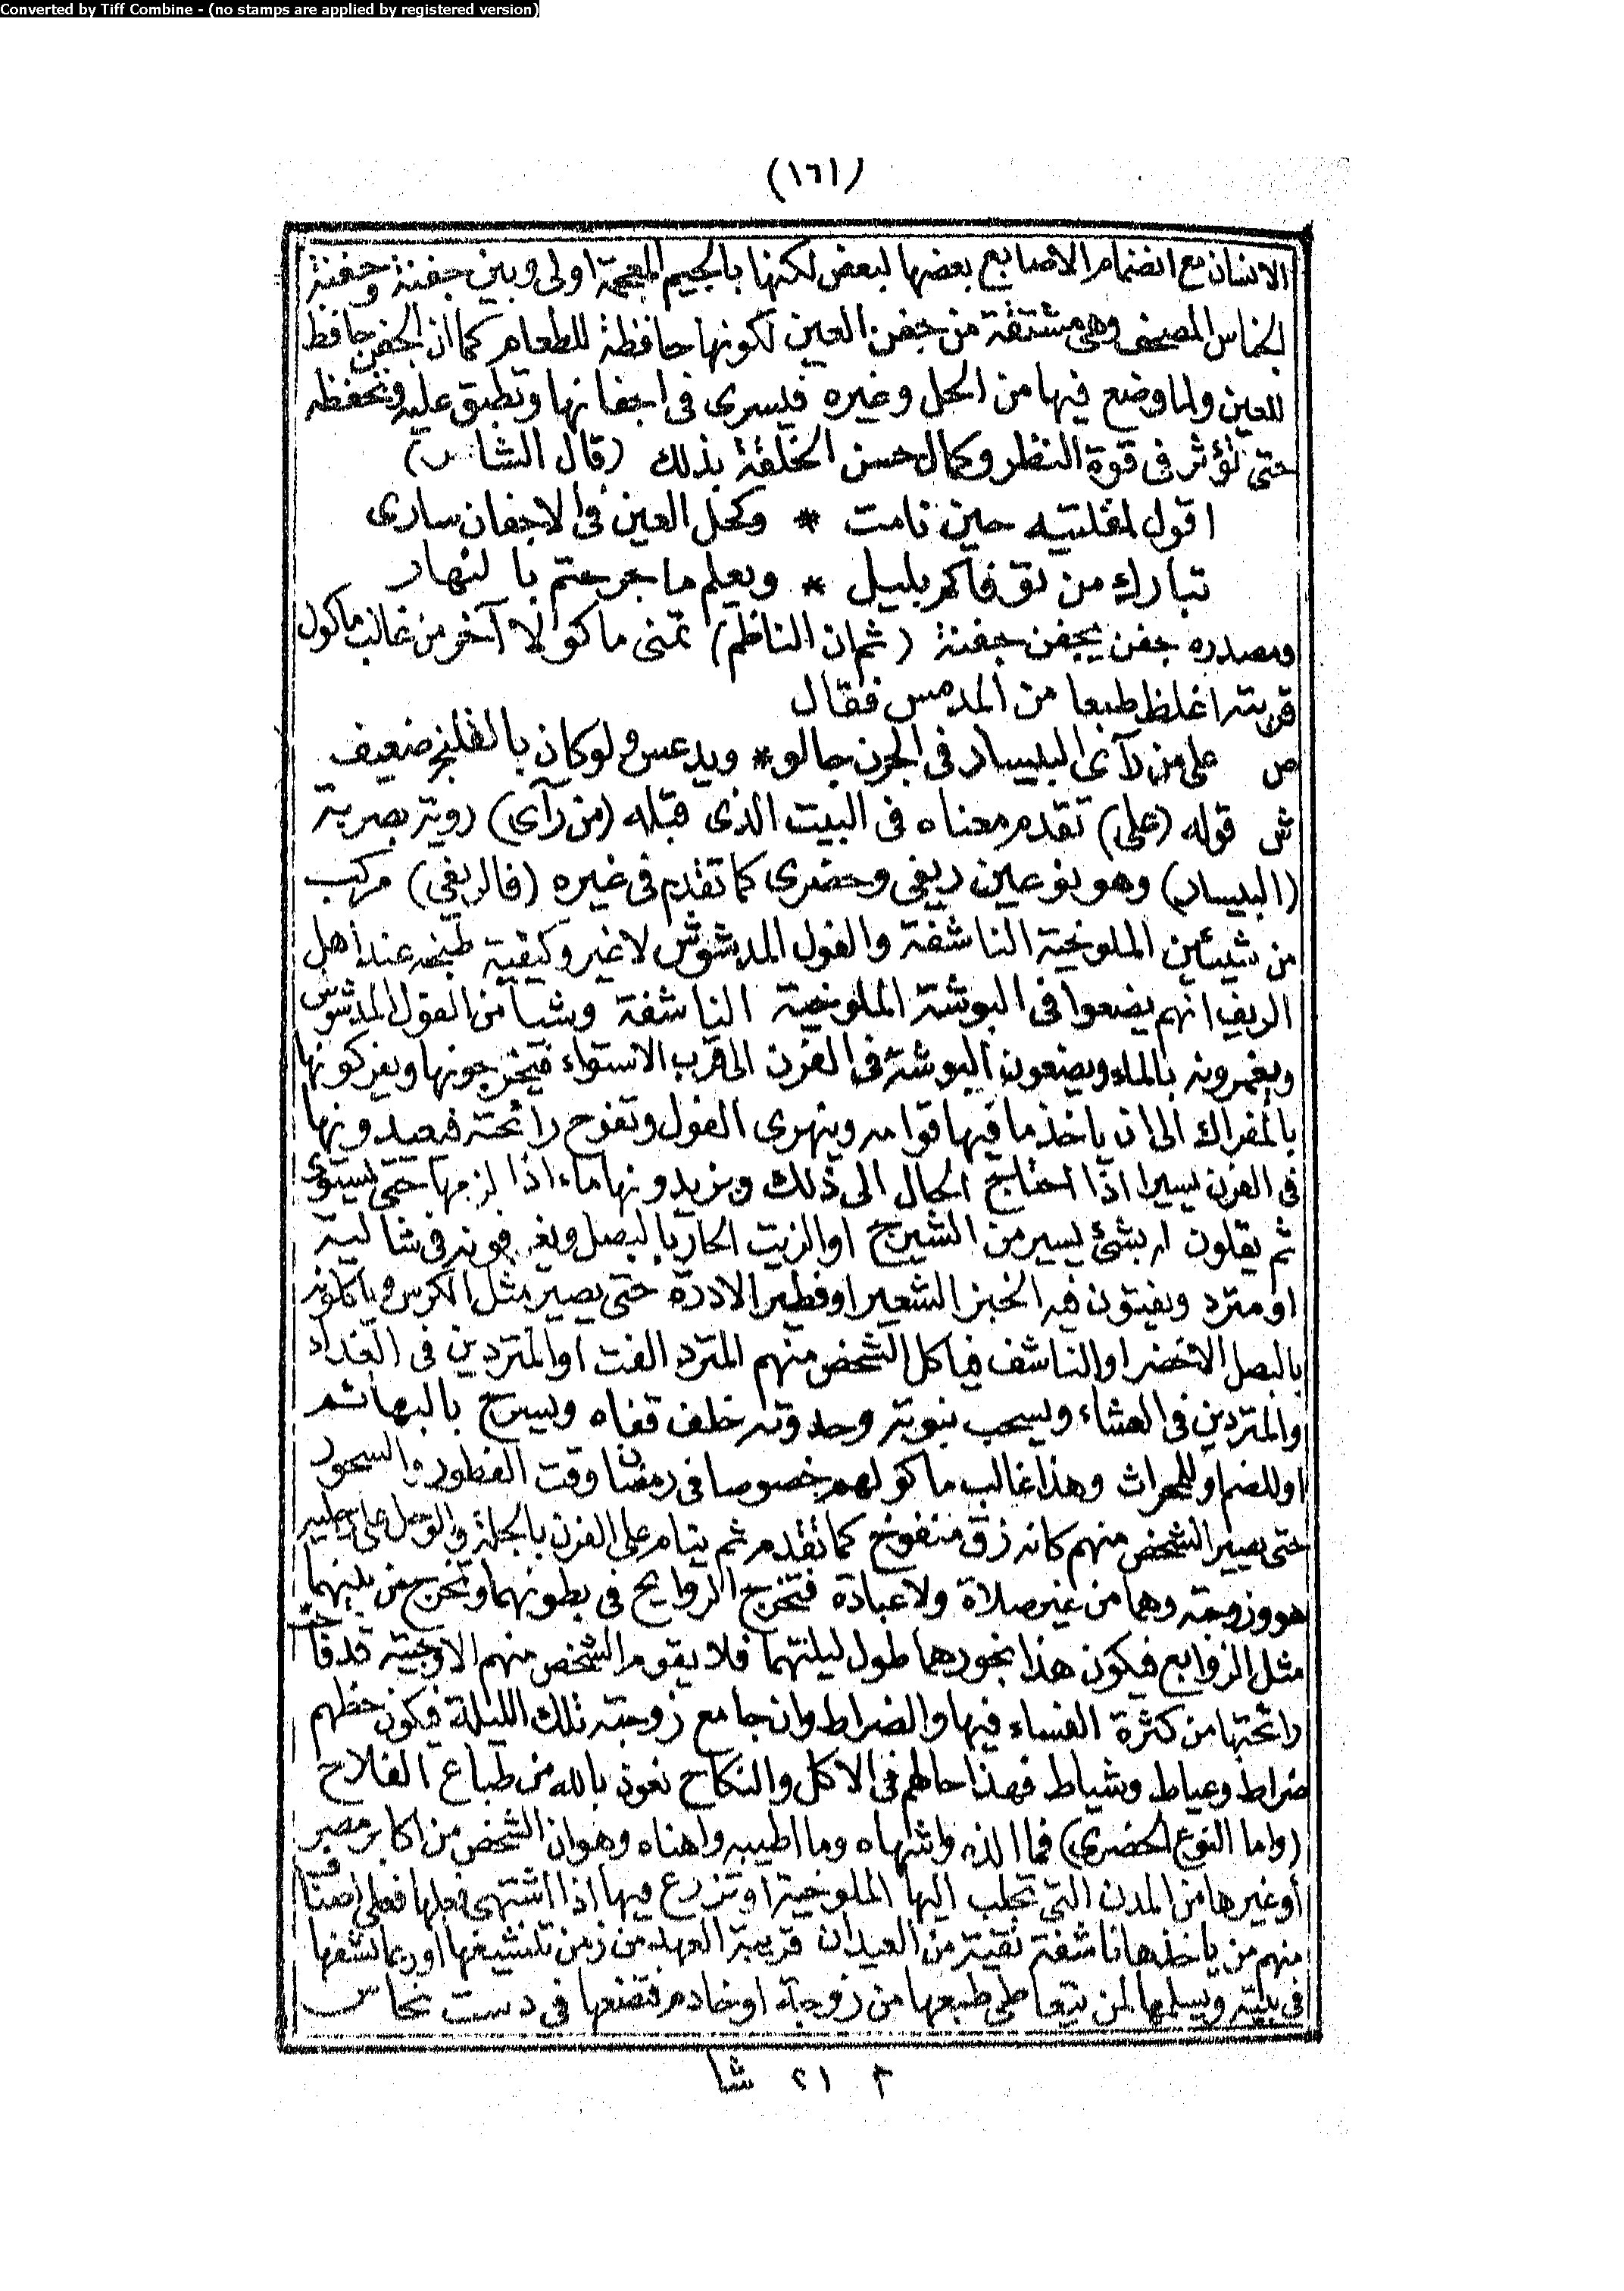 Converted by Tiff Combine - (no stamps are applied by registered version)
(١٦١)
الانسان مع انضمام الاصابع بعضها لبعض لكنها بالجيم المعجمة اولى وبين جفنة وحفنة
الجناس المصحف وهى مشتقة من جفن العين لكونها حافظة للطعام كما ان الجفن حافظ
للعين ولما وضع فيها من الكحل وغيره فيسرى فى اجفانها وتطبق عليه وتحفظه
حتى تؤثر فى قوة النظر وكمال حسن الخلقة بذلك (قال الشاعر)
اقول لمقلتيه حين نامت * وكحل العين فى الاجفان سارى
تبارك من توفاكم بليل * ويعلم ما جرحتم بالنهار
ومصدره جفن يجفن جفنة (ثم ان الناظم) تمنى ماكولا آخر من غالب ماكول
قريته اغلظ طبعا من المدمس فقال
ص على من رآى البيسار فى الجرن جالو * ويدعس ولو كان بالفلنج ضعيف
ش قوله (على) تقدم معناه فى البيت الذى قبله (من رآى) روية بصرية
(البيسار) وهو نوعين ريفى وحضرى كما تقدم فى غيره (فالريفى) مركب
من شيئين الملوخية الناشفة والفول المدشوش لا غير وكيفية طبخه عند أهل
الريف انهم يضعوا فى البوشة الملوخية الناشفة وشيا من الفول المدشوش
ويغمرونه بالماء ويضعون البوشة فى الفرن الى قرب الاستواء فيخرجونها ويفركونها
بالمفراك الى ان ياخذ ما فيها قوامه وينهرى الفول وتفوح رائحته فيعيدونها
فى الفرن يسيرا اذا احتاج الحال الى ذلك ويزيدونها ماء اذا لزمها حتى يستوى
ثم يقلون له بشئ يسير من الشيرج او الزيت الحار بالبصل ويغرفونه فى شالية
او مترد ويفتون فيه الخبز الشعير او فطير الادره حتى يصير مثل الكرس وياكلونه
بالبصل الاخضر او الناشف فياكل الشخص منهم المترد الفت او المتردين فى الغداد
والمتردين فى العشاء ويسحب نبوته وحدوته خلف قفاه ويسرح بالبهائم
او للضم او للحراث وهذا غالب ماكولهم خصوصا فى رمضان وقت الفطور والسحور
حتى يصير الشخص منهم كانه زق منفوخ كما تقدم ثم ينام على الفرن بالجلة والوحل على
هو وزوجته وهما من غير صلاة ولا عبادة فتخرج الروايح فى بطونهما وتخرج من بينهما
مثل الزوابع فيكون هذا بخورهما طول ليلتهما فلا يقوم الشخص منهم الا وجبته قد فاحت
رائحتها من كثرة الفساء فيها والضراط وان جامع زوجته تلك الليلة فيكون حظهم
ضراط وعياط وشياط فهذا حالهم فى الاكل والنكاح نعوذ بالله من طباع الفلاح
(واما النوع الحضرى) فما الذه واشهاه وما اطيبه واهناه وهو ان الشخص من اكابر مصر
أو غيرها من المدن التى تجلب اليها الملوخية او تزرع فيها اذا اشتهى فعلها فعلى اصناف
منهم من ياخذها ناشفة نقية من العيدان قريبة العهد من زمن تنشيفها او ربما نشفها
فى بيته ويسلمها لمن يتعاطى طبعها من زوجة او خادم فتضعها فى دست نحاس
٢ ٢١ شا